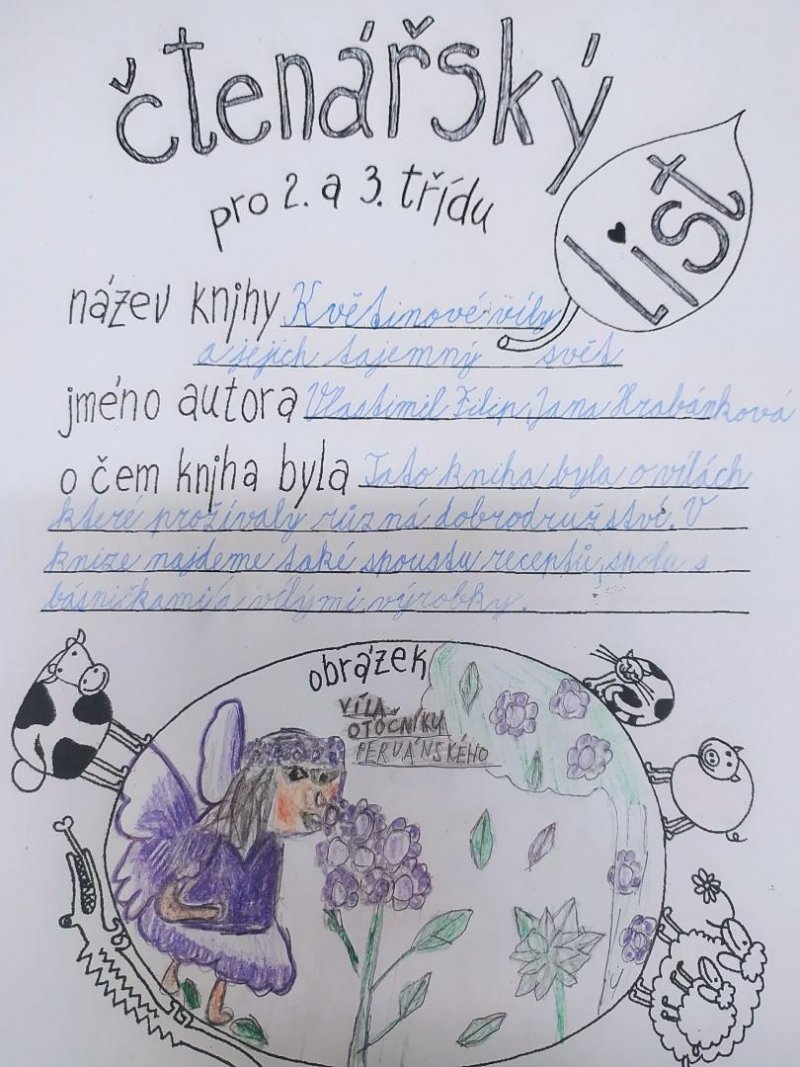 čtenářský
list
pro 2. a 3. třídu
název knjhy Květinové víly
a jejich tajemný svět
jméno autora Vlastimil Filip, Jana Hrabánková
o čem knjha byla Tato kniha byla o vílách
které prožívaly různá dobrodružství. V
knize najdeme také spoustu receptů, spolu s
básničkami a vílými výrobky.
obrázek
VÍLA
OTOČNÍKU
PERUÁNSKÉHO